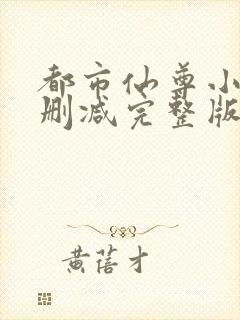 都市仙尊小
删减完整版
黄蓓才